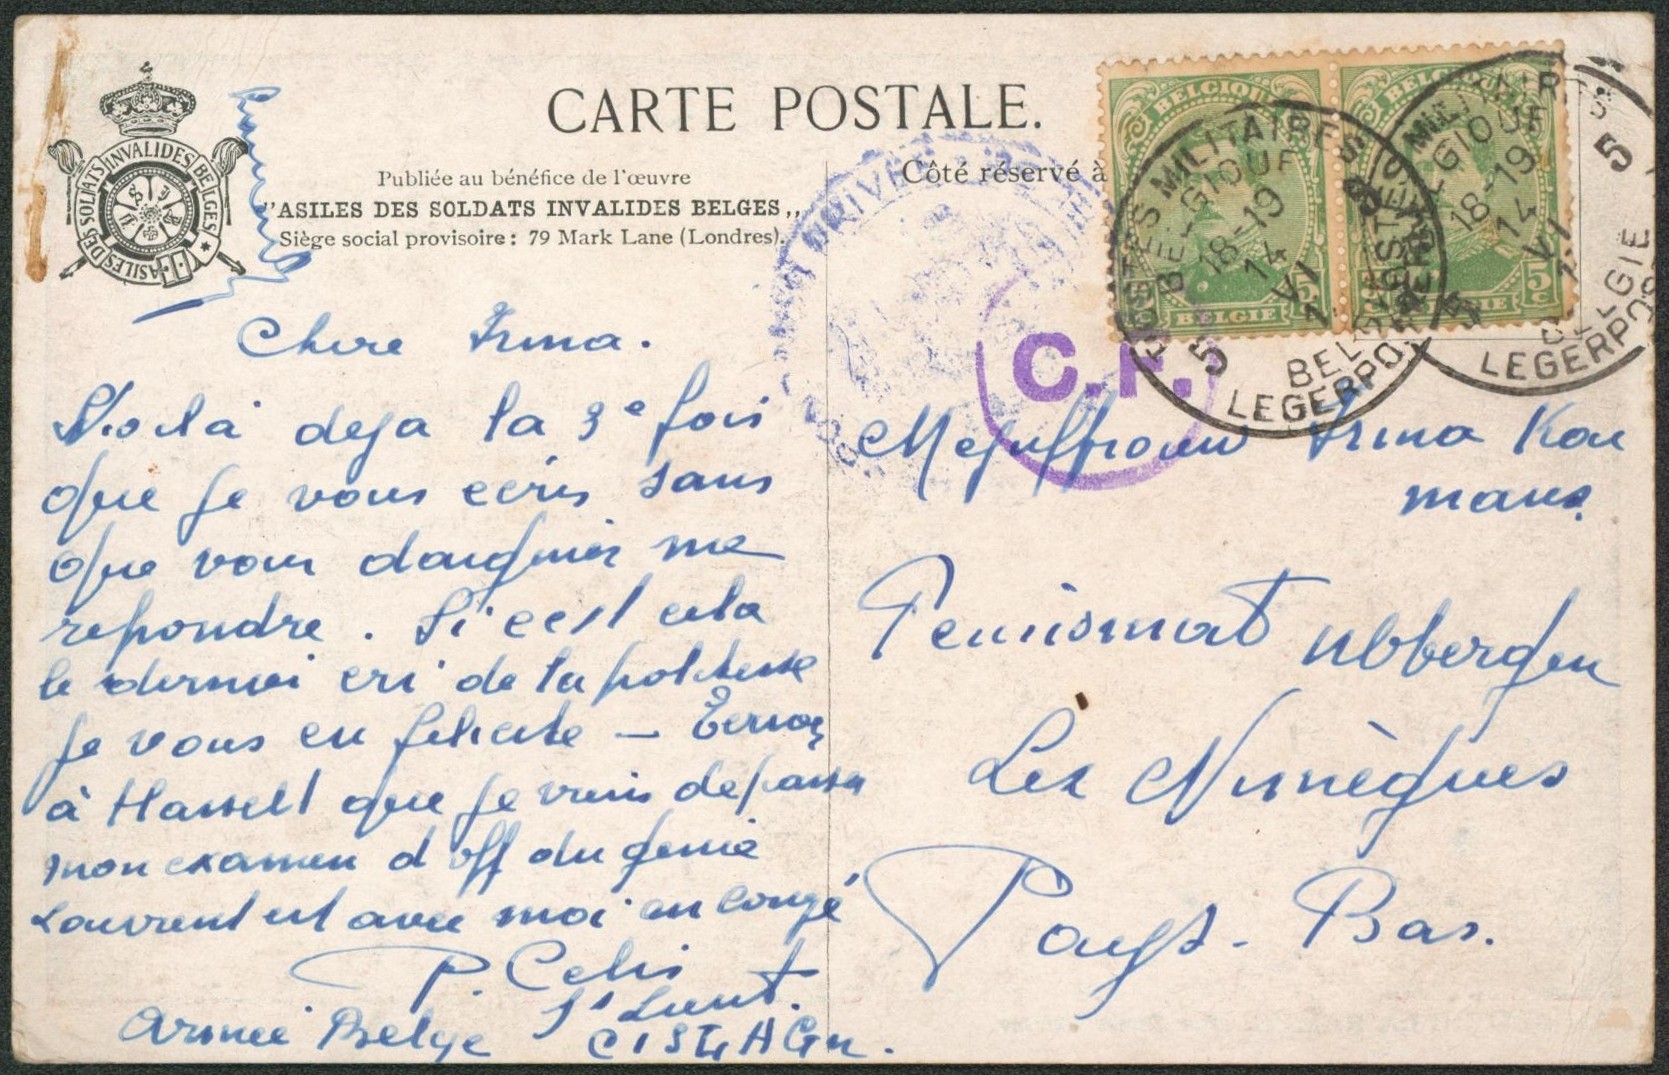 CARTE POSTALE.
Publiée au bénéfice de l'œuvre
"ASILES DES SOLDATS INVALIDES BELGES„
Siège social provisoire : 79 Mark Lane (Londres).
ASILES DES SOLDATS INVALIDES BELGES
Côté réservé à
BELGIQUE
5c
BELGIE
BELGIQUE
5c
BELGIE
POSTES MILITAIRES 5
BELGIQUE
18-19
14
VI
BELGIE
LEGERPOSTERIJ 5
MILITAIRES 5
BELGIQUE
18-19
14
VI
BELGIE
LEGERPOS
C.F.
Chere Irma.
Voila deja la 3e fois
que je vous ecris sans
que vous daigniez me
repondre. Si c'est cela
le dernier cri de la politesse
je vous en felicite –
à Hasselt que je viens de passer
mon examen d'off du genie
Laurent est avec moi en congé
P. Celis
St Lieut.
Armée Belge CISLAGn.
Mejuffrouw Irma Kou
mans.
Pensionnat Ubbergen
Lez Nimègues
Pays-Bas.